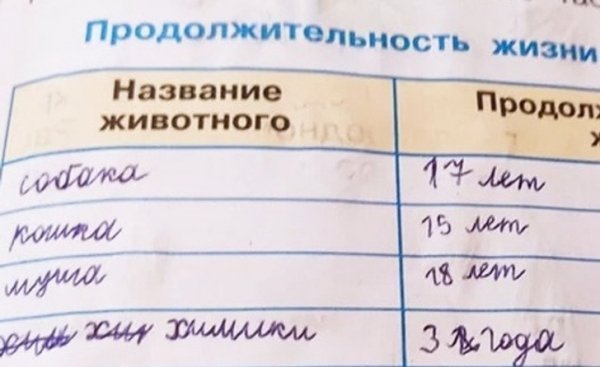 Продолжительность жизни
Название животного
Продол
собака 17 лет
кошка 15 лет
муша 18 лет
химики 3 года